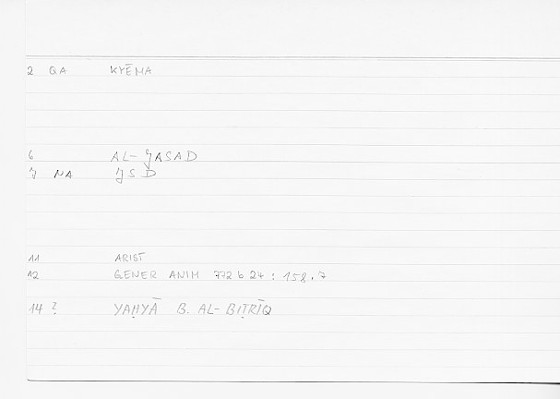 2 QA KYĒMA
6 AL-JASAD
7 NA JSD
11 ARIST
12 GENER ANIM 772 b 24 : 158.7
14 ? YAḤYĀ B. AL-BIṬRĪQ